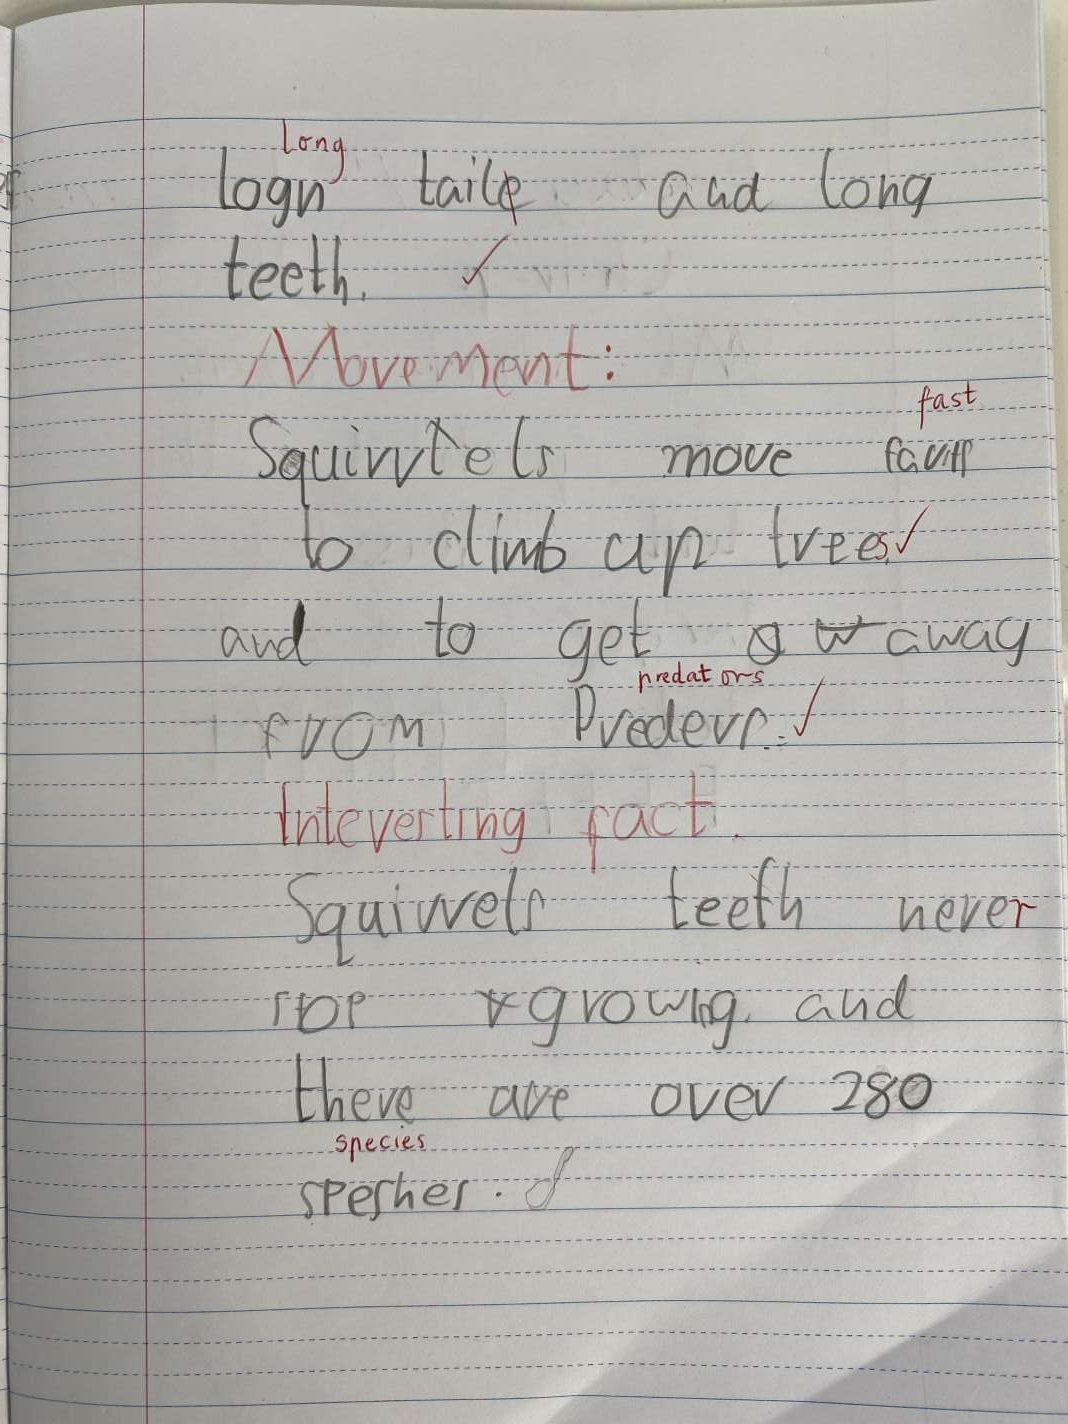 long
logn taile and long
teeth.
Movement:
fast
Squirrels move
to climb up trees
and to get away
predators
from Preders.
Interesting fact.
Squirrels teeth never
stop growing. and
there are over 280
species
speshes.